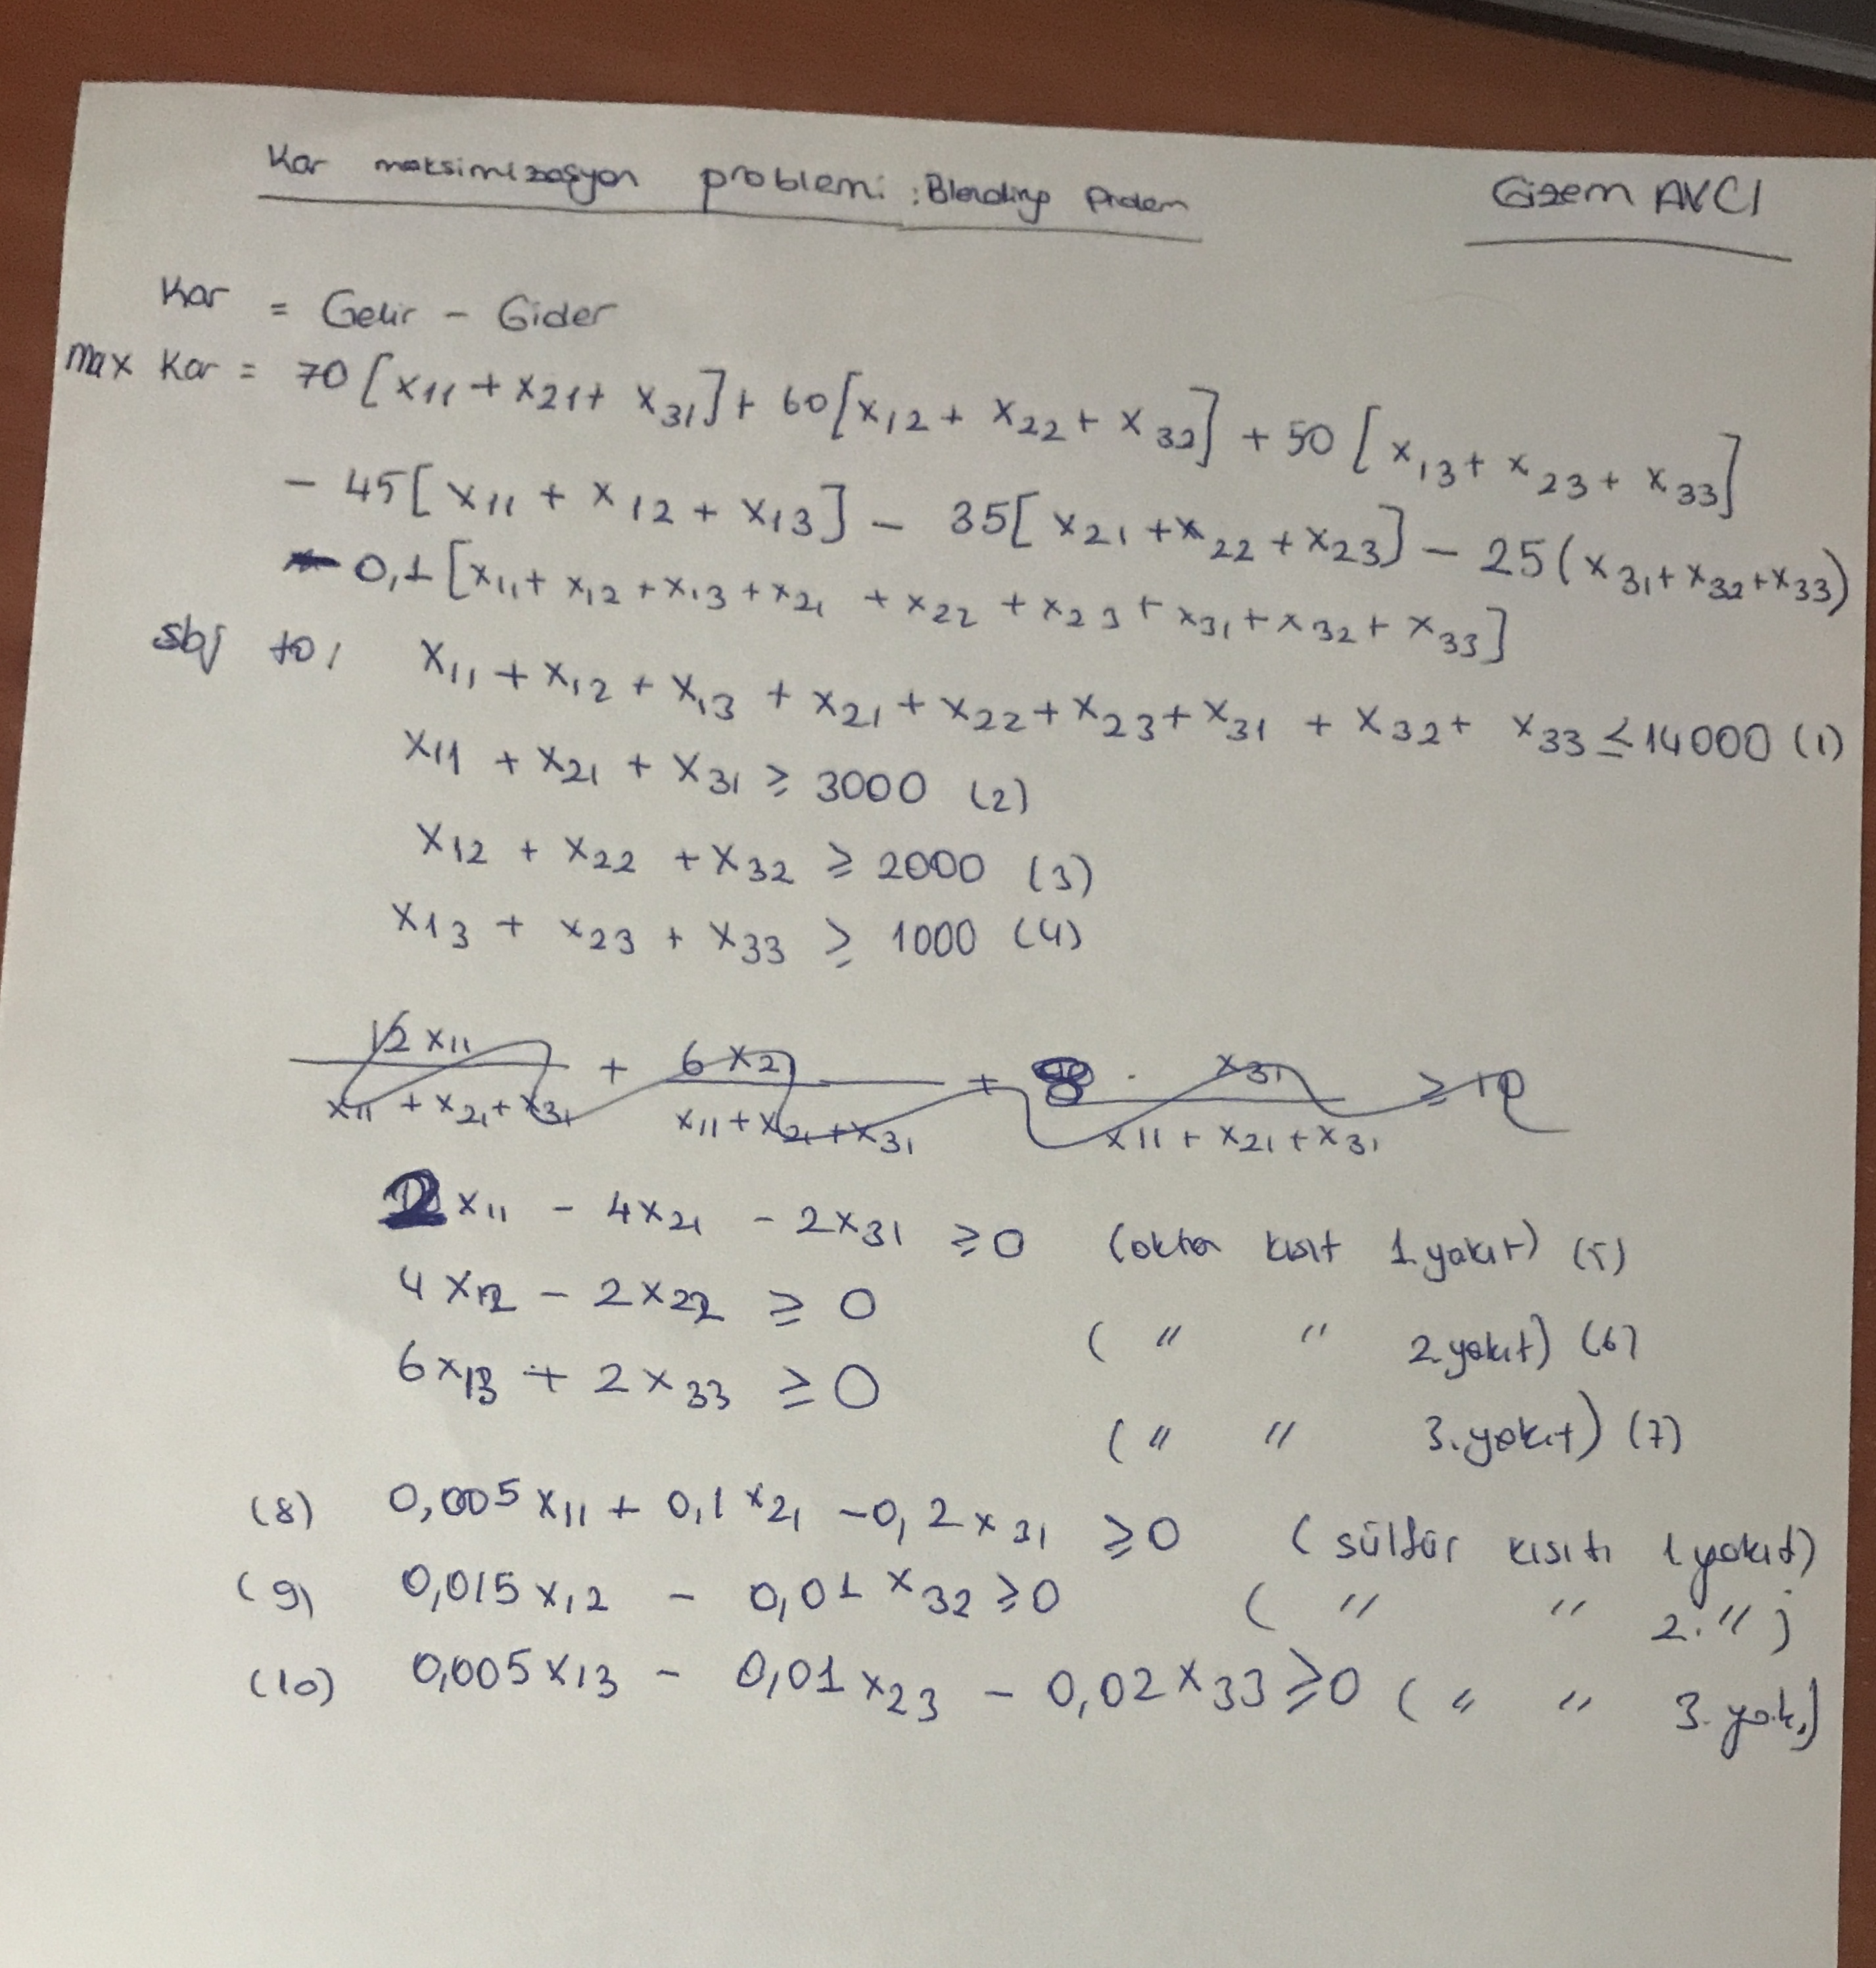 Kar maksimizasyon problemi : Blending Problem
Gizem AVCI
Kar = Gelir - Gider
Max Kar = 70 [x11 + x21 + x31] + 60 [x12 + x22 + x32] + 50 [x13 + x23 + x33]
- 45 [x11 + x12 + x13] - 35 [x21 + x22 + x23] - 25 (x31 + x32 + x33)
- 0,1 [x11 + x12 + x13 + x21 + x22 + x23 + x31 + x32 + x33]
sbj to: x11 + x12 + x13 + x21 + x22 + x23 + x31 + x32 + x33 ≤ 14000 (1)
x11 + x21 + x31 ≥ 3000 (2)
x12 + x22 + x32 ≥ 2000 (3)
x13 + x23 + x33 ≥ 1000 (4)
12 x11 + 6 x21 + 8 . x31 ≥ 10
x11 + x21 + x31 x11 + x21 + x31 x11 + x21 + x31
2 x11 - 4x21 - 2x31 ≥ 0 (oktan kısıt 1.yakıt) (5)
4 x12 - 2x22 ≥ 0 ( " " 2.yakıt) (6)
6x13 + 2x33 ≥ 0 ( " " 3.yakıt) (7)
(8) 0,005 x11 + 0,1 x21 - 0,2 x31 ≥ 0 (sülfür kısıtı 1 yakıt)
(9) 0,015 x12 - 0,01 x32 ≥ 0 ( " " 2. " )
(10) 0,005 x13 - 0,01 x23 - 0,02 x33 ≥ 0 ( " " 3. yak.)